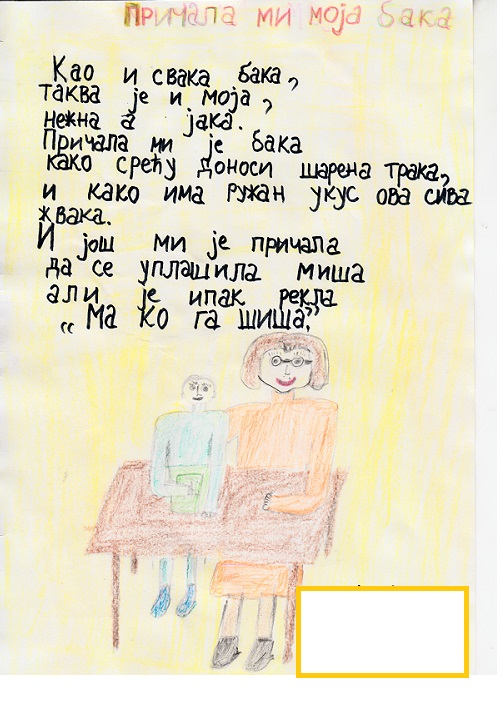 Причала ми моја бака
Као и свака бака,
таква је и моја,
нежна а јака.
Причала ми је бака
како срећу доноси шарена трака,
и како има ружан укус ова сива
жвака.
И још ми је причала
да се уплашила миша
али је ипак рекла
„Ма ко га шиша."